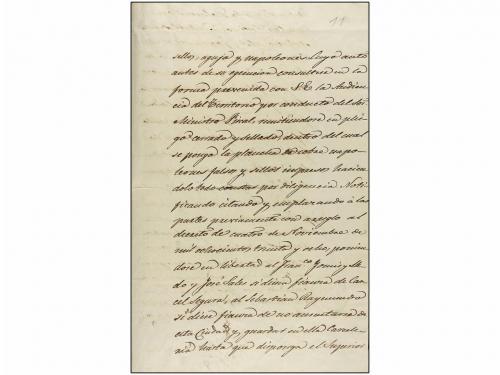 11
sellos, aguja y napoleones. Cuyo auto
antes de su egecucion consultese en la
forma prevenida con S.E. la Audien
cia del Territorio y por conducto del Sor.
Ministro Fiscal, remitiendose en plie
go cerrado y sellado, dentro del cual
se ponga la plancha de cobre napo
leones falsos y sellos impresos hacien
dolo todo constar por diligencia Noti
ficando citando y emplazando á las
partes previamente con arreglo al
decreto de cuatro de Noviembre de
mil ochocientos treinta y ocho, ponien
dose en libertad al Franco.
do y José Sales si diera fianza de Car
cel Segura, al Sebastian Raymundo
si diera fianza de no ausentarse de
esta Ciudad y, guardar en ella Carcele
ria hasta que disponga el Superior